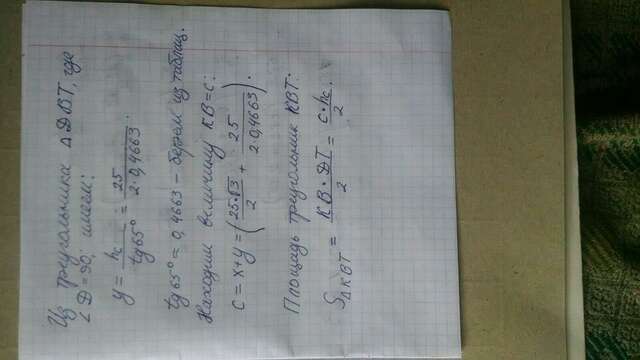 Из треугольника ΔДВТ, где
∠Д=90, имеем:
y = hc / tg65° = 25 / 2·0,4663.
tg65° = 0,4663 – берем из таблиц.
Находим величину КВ=с:
c = x+y = (25·√3 / 2 + 25 / 2·0,4663).
Площадь треугольник КВТ:
SΔКВТ = КВ·ДТ / 2 = c·hc / 2.